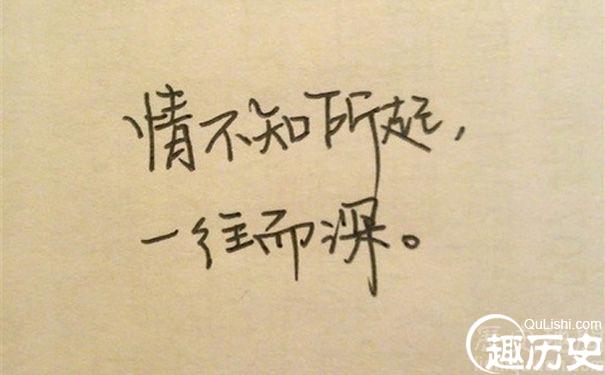 情不知所起，
一往而深。
QuLishi.com
趣历史